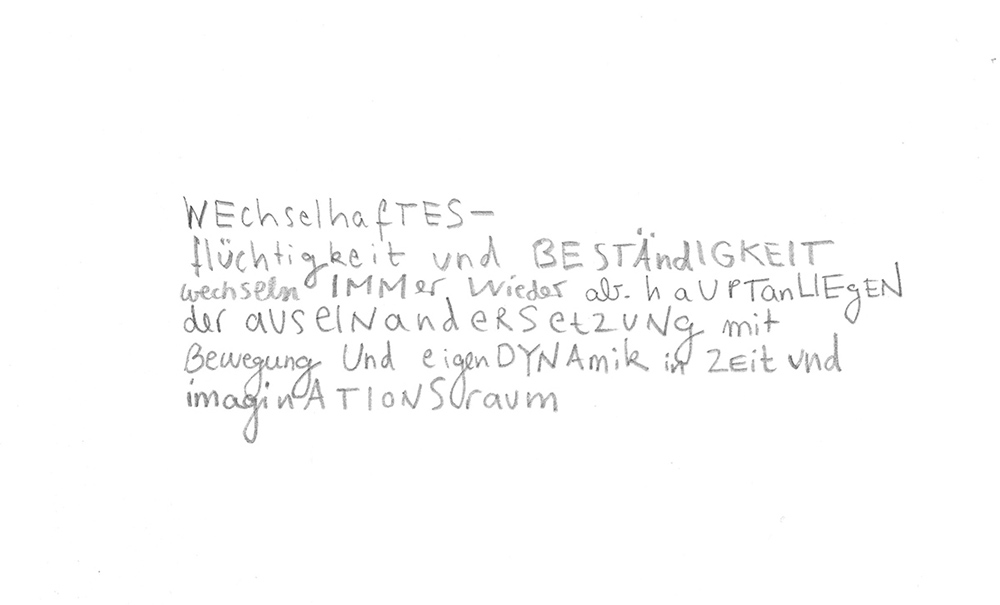 WEchselhafTES–
flüchtigkeit und BESTÄndIGKEIT
wechseln IMMer wieder ab. hAUPTanLIEgEN
der aUSeINandeRSetZUNg mit
Bewegung Und eigenDYNAmik in ZEit und
imaginATIONSraum